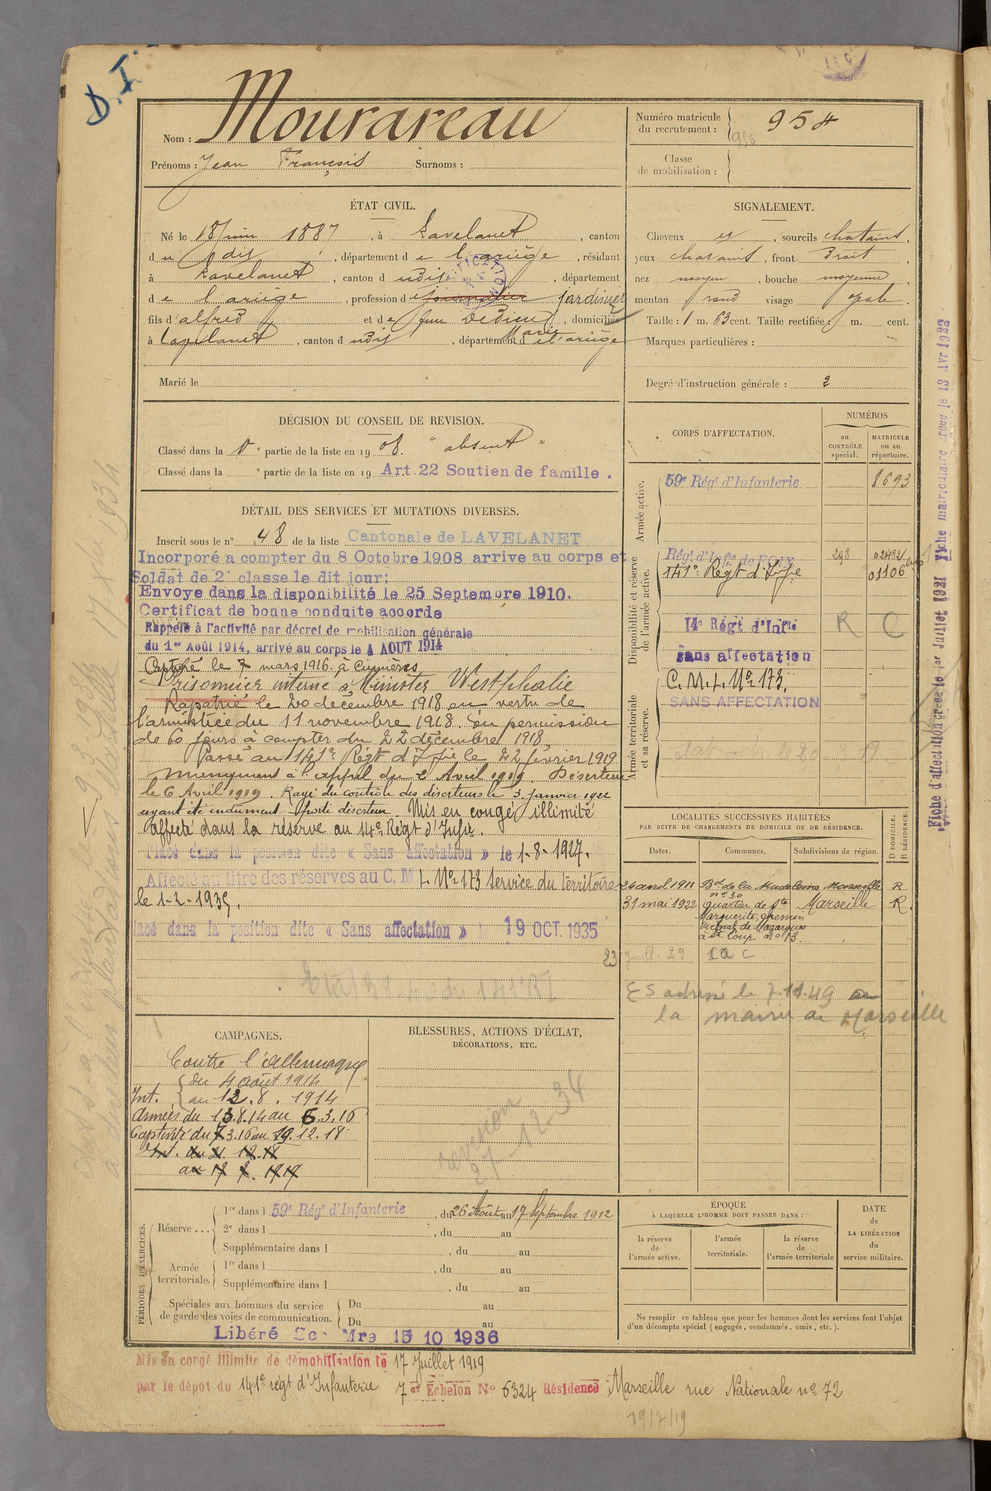 D.I
Nom : Mourareau
Prénoms : Jean François Surnoms :
Numéro matricule du recrutement : 954
986
Classe de mobilisation :
ÉTAT CIVIL.
Né le 18 juin 1887, à Lavelanet, canton
du dit, département de l'ariège, résidant
à Lavelanet, canton d udit, département
de l'ariège, profession de journalier jardinier
fils d'alfred et de feue Dedieu Marie, domiciliés
à Lavelanet, canton d udit, département de l'ariège
Marié le
SIGNALEMENT.
Cheveux et, sourcils chatains,
yeux chatains, front Droit
nez moyen, bouche moyenne
menton rond visage ovale
Taille : 1 m. 63 cent. Taille rectifiée : m. cent.
Marques particulières :
Degré d'instruction générale : 2
DÉCISION DU CONSEIL DE REVISION.
Classé dans la 5e partie de la liste en 1908. "absent"
Classé dans la e partie de la liste en 19 Art. 22 Soutien de famille.
DÉTAIL DES SERVICES ET MUTATIONS DIVERSES.
Inscrit sous le n° 48 de la liste Cantonale de LAVELANET
Incorporé a compter du 8 Octobre 1908 arrive au corps et
Soldat de 2e classe le dit jour;
Envoye dans la disponibilité le 25 Septembre 1910.
Certificat de bonne conduite accorde
Rappelé à l'activité par décret de mobilisation générale
du 1er Août 1914, arrivé au corps le 4 AOUT 1914
Capturé le 7 mars 1916 à Cumières
Prisonnier interné à Munster Westphalie
Rapatrié le 20 décembre 1918 en vertu de
l'armistice du 11 novembre 1918. En permission
de 60 jours à compter du 22 décembre 1918
Passé au 141e Régt d'Infie le 22 février 1919
Manquement à l'appel du 2 Avril 1919. Déserteur
le 6 Avril 1919. Rayé du contrôle des déserteurs le 3 janvier 1922
ayant été indument porté déserteur. Mis en congé illimité
Affecté dans la réserve au 14e Régt d'Infie.
Placé dans la position dite « Sans affectation » le 1-8-1927.
Affecté au titre des réserves au C.M.I. No 173 Service du territoire
le 1-2-1935.
Placé dans la position dite « Sans affectation » le 19 OCT. 1935
CORPS D'AFFECTATION.
NUMÉROS
au CONTRÔLE spécial.
MATRICULE ou au répertoire.
Armée active.
59e Régt d'Infanterie 8693
Disponibilité et réserve de l'armée active.
Régt d'Infie de FOIX 248 02484
141e Régt d'Infie 01106
14e Régt d'Infie R C
sans affectation
Armée territoriale et sa réserve.
C.M.I. No 173.
SANS AFFECTATION
LOCALITÉS SUCCESSIVES HABITÉES
PAR SUITE DE CHANGEMENTS DE DOMICILE OU DE RÉSIDENCE.
Dates. Communes. Subdivisions de région. D DOMICILE. R RÉSIDENCE.
26 avril 1911 Bd de la Madeleine no 30 Marseille R
31 mai 1922 quartier de Ste Marguerite, chemin Marseille R.
23 juill. 29
ES adressé le 7-11-49 au
la mairie de Marseille
CAMPAGNES.
Contre l'Allemagne
Int. { du 4 août 1914
au 12.8.1914
Armées du 13.8.14 au 6.3.16
Captivité du 7.3.16 au 19.12.18
BLESSURES, ACTIONS D'ÉCLAT,
DÉCORATIONS, ETC.
revision
27-12-34
PÉRIODES D'EXERCICES.
Réserve ....
1re dans l 59e Régt d'Infanterie, du 26 Août au 17 Septembre 1912
2e dans l , du au
Supplémentaire dans l , du au
Armée territoriale.
1re dans l , du au
Supplémentaire dans l , du au
Spéciales aux hommes du service de garde des voies de communication.
Du au
Du au
Libéré Mre 15 10 1936
ÉPOQUE
À LAQUELLE L'HOMME DOIT PASSER DANS :
la réserve de l'armée active.
l'armée territoriale.
la réserve de l'armée territoriale
DATE de LA LIBÉRATION du service militaire.
Ne remplir ce tableau que pour les hommes dont les services font l'objet
d'un décompte spécial (engagés, condamnés, omis, etc.).
Mis en congé illimité de démobilisation le 17 Juillet 1919
par le dépot du 141e régt d'Infanterie 7e Echelon No 6324 Résidence Marseille rue Nationale no 72
19/7/19
Fiche d'affectation créée le 1er Juillet 1921 Fiche matriculaire créée le 13 Avr 1922